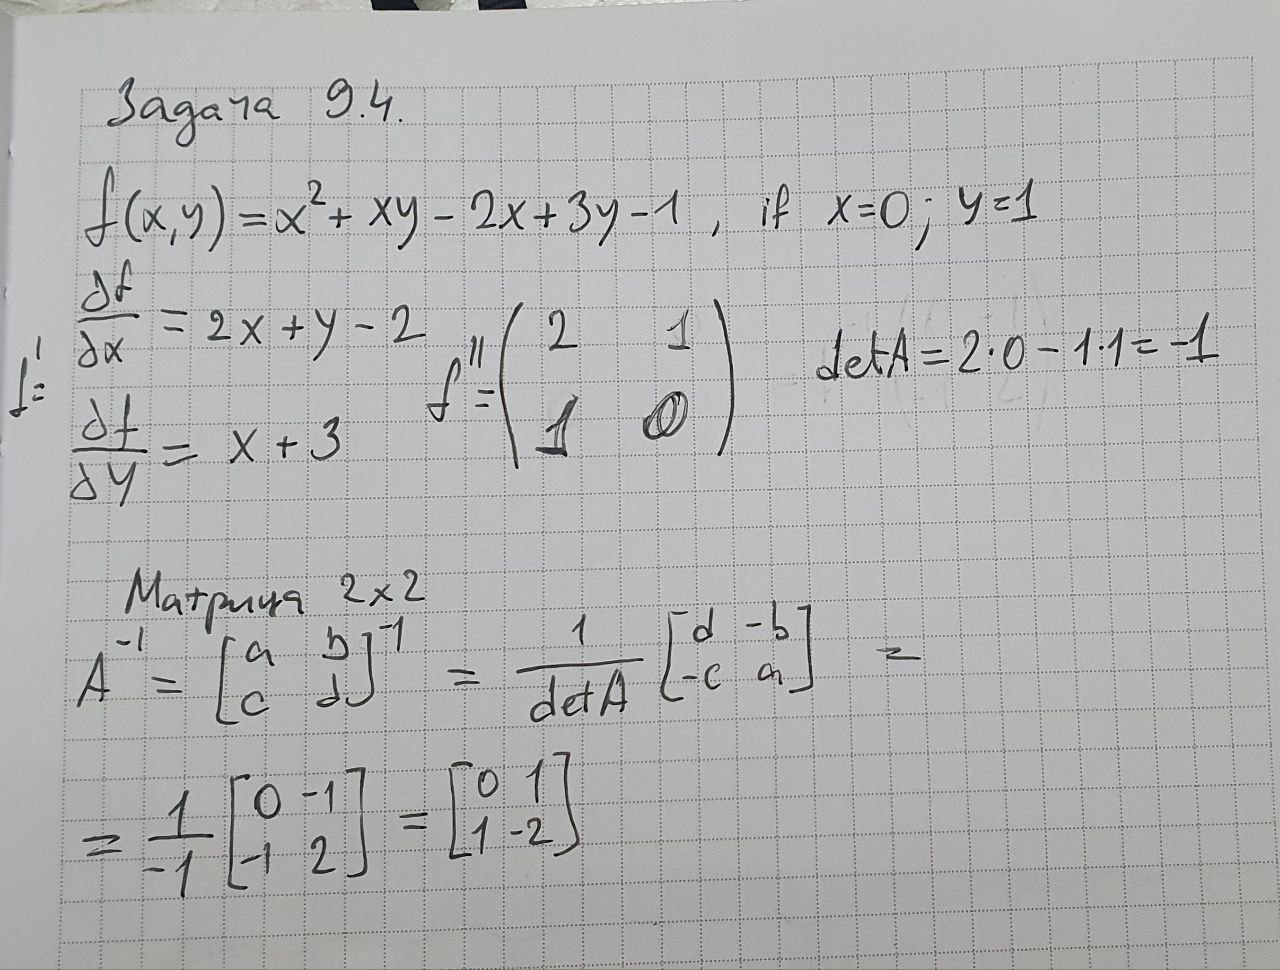 Задача 9.4.
f(x,y) = x² + xy - 2x + 3y - 1 , if x=0; y=1
f' = ∂f/∂x = 2x + y - 2
∂f/∂y = x + 3
f'' = (2 1
1 0)
det A = 2·0 - 1·1 = -1
Матрица 2x2
A⁻¹ = [a b
c d]⁻¹ = 1/det A [d -b
-c a] =
= 1/-1 [0 -1
-1 2] = [0 1
1 -2]